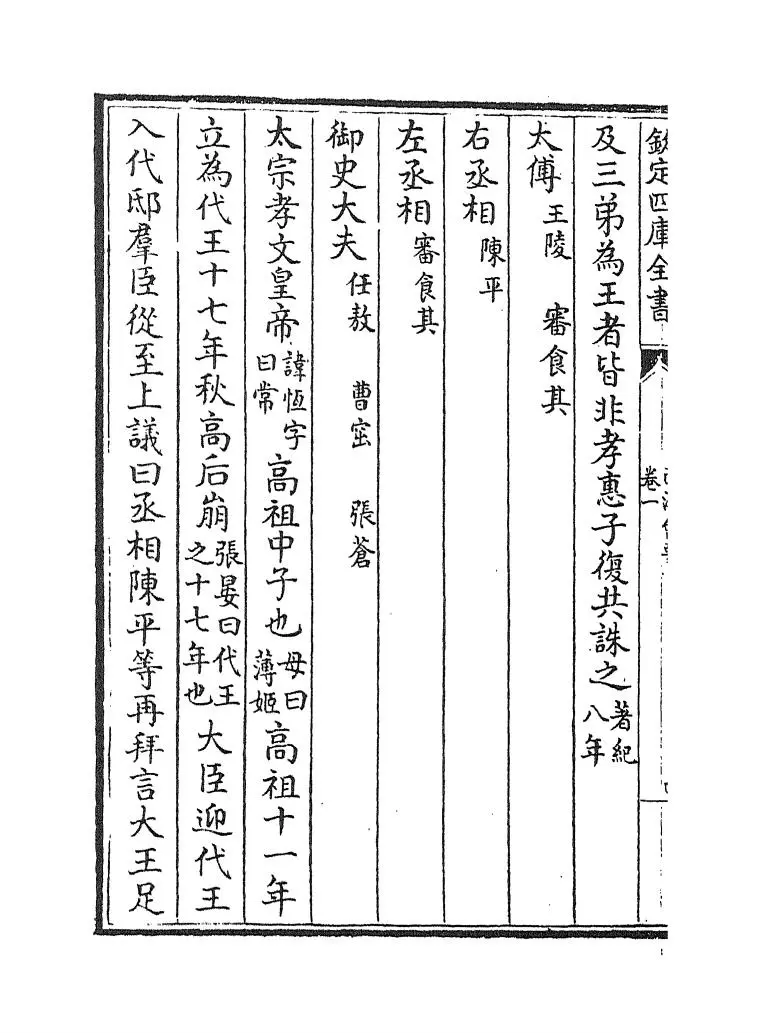 欽定四庫全書
卷一
及三弟為王者皆非孝惠子復共誅之著紀八年
太傅王陵 審食其
右丞相陳平
左丞相審食其
御史大夫任敖 曹窋 張蒼
太宗孝文皇帝諱恆字曰常高祖中子也母曰薄姬高祖十一年
立為代王十七年秋高后崩張晏曰代王之十七年也大臣迎代王
入代邸羣臣從至上議曰丞相陳平等再拜言大王足